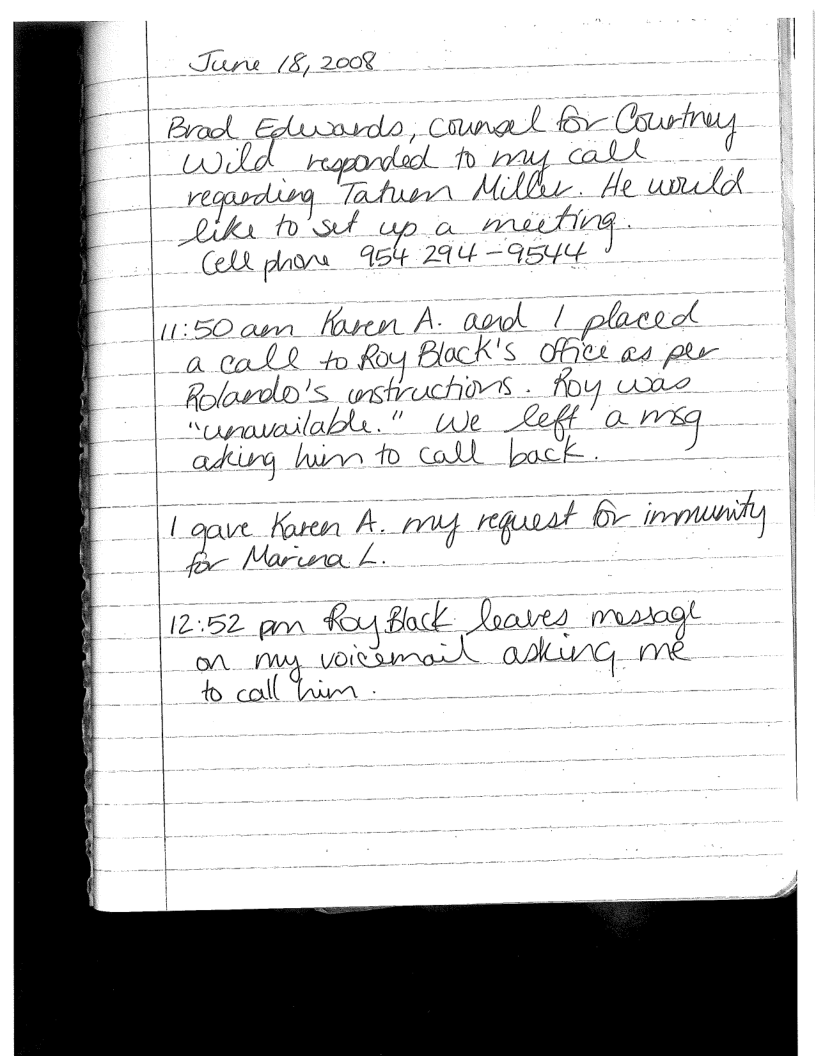 June 18, 2008
Brad Edwards, counsel for Courtney
Wild responded to my call
regarding Tatum Miller. He would
like to set up a meeting.
Cell phone 954 294-9544
11:50 am Karen A. and I placed
a call to Roy Black's office as per
Rolando's instructions. Roy was
"unavailable." We left a msg
asking him to call back.
I gave Karen A. my request for immunity
for Marina L.
12:52 pm Roy Black leaves message
on my voicemail asking me
to call him.